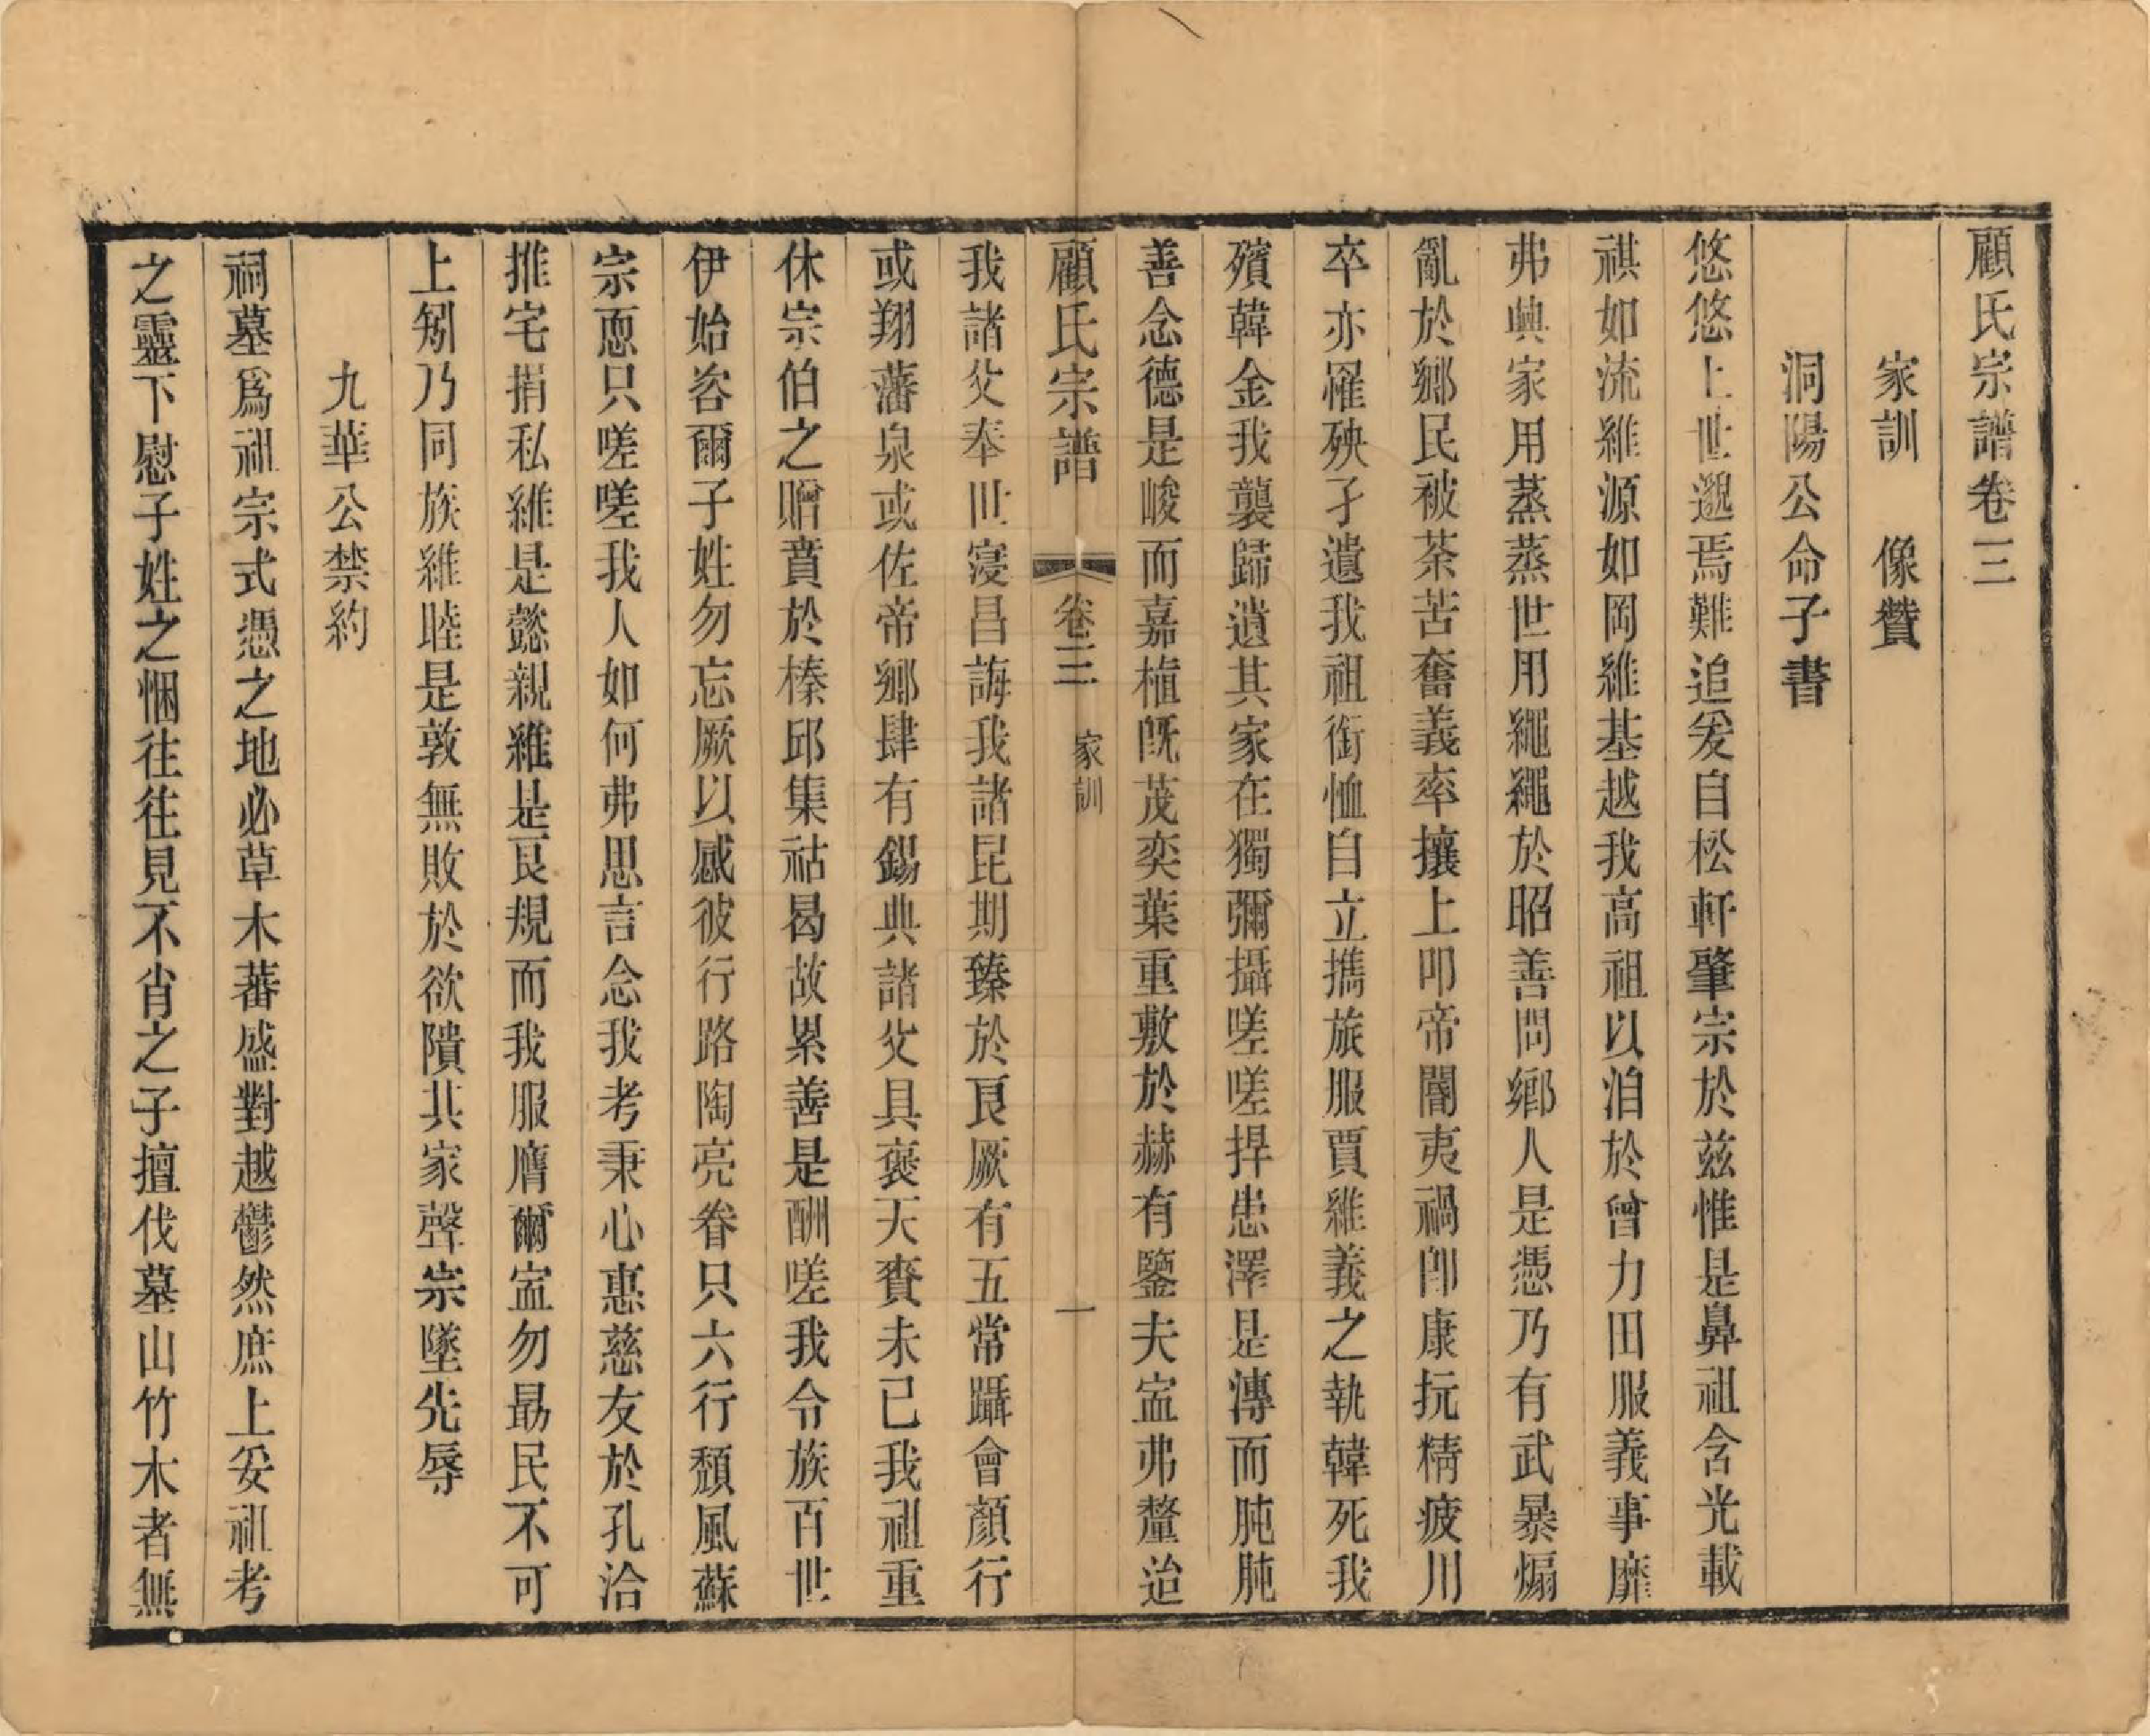 顧氏宗譜卷三
家訓　像贊
洞陽公命子書
悠悠上世邈焉難追爰自松軒肇宗於兹惟是鼻祖含光載
祺如流維源如岡維基越我高祖以洎於曾力田服義事靡
弗興家用蒸蒸世用繩繩於昭善問鄉人是憑乃有武暴煽
亂於鄉民被荼苦奮義率攘上叩帝閽夷禍卽康抏精疲川
卒亦罹殃孑遺我祖銜恤自立攜旅服賈維義之執韓死我
殯韓金我襲歸遺其家在獨彌攝嗟嗟捍患澤是溥而肫肫
善念德是峻而嘉植旣茂奕葉重敷於赫有鑒夫寍弗釐迨
顧氏宗譜　卷三　家訓　一
我諸父奉世寖昌誨我諸昆期臻於良厥有五常躡會顏行
或翔藩泉或佐帝鄉肆有錫典諸父具褒天賚未已我祖重
休宗伯之贈賁於榛邱集祜曷故累善是酬嗟我令族百世
伊始咨爾子姓勿忘厥以感彼行路陶亮眷只六行頹風蘇
宗恧只嗟嗟我人如何弗思言念我考秉心惠慈友於孔洽
推宅捐私維是懿親維是良規而我服膺爾寍勿勗民不可
上矧乃同族維睦是敦無敗於欲隤其家聲宗墜先辱
九華公禁約
祠墓爲祖宗式憑之地必草木蕃盛對越鬱然庶上妥祖考
之靈下慰子姓之悃往往見不肖之子擅伐墓山竹木者無